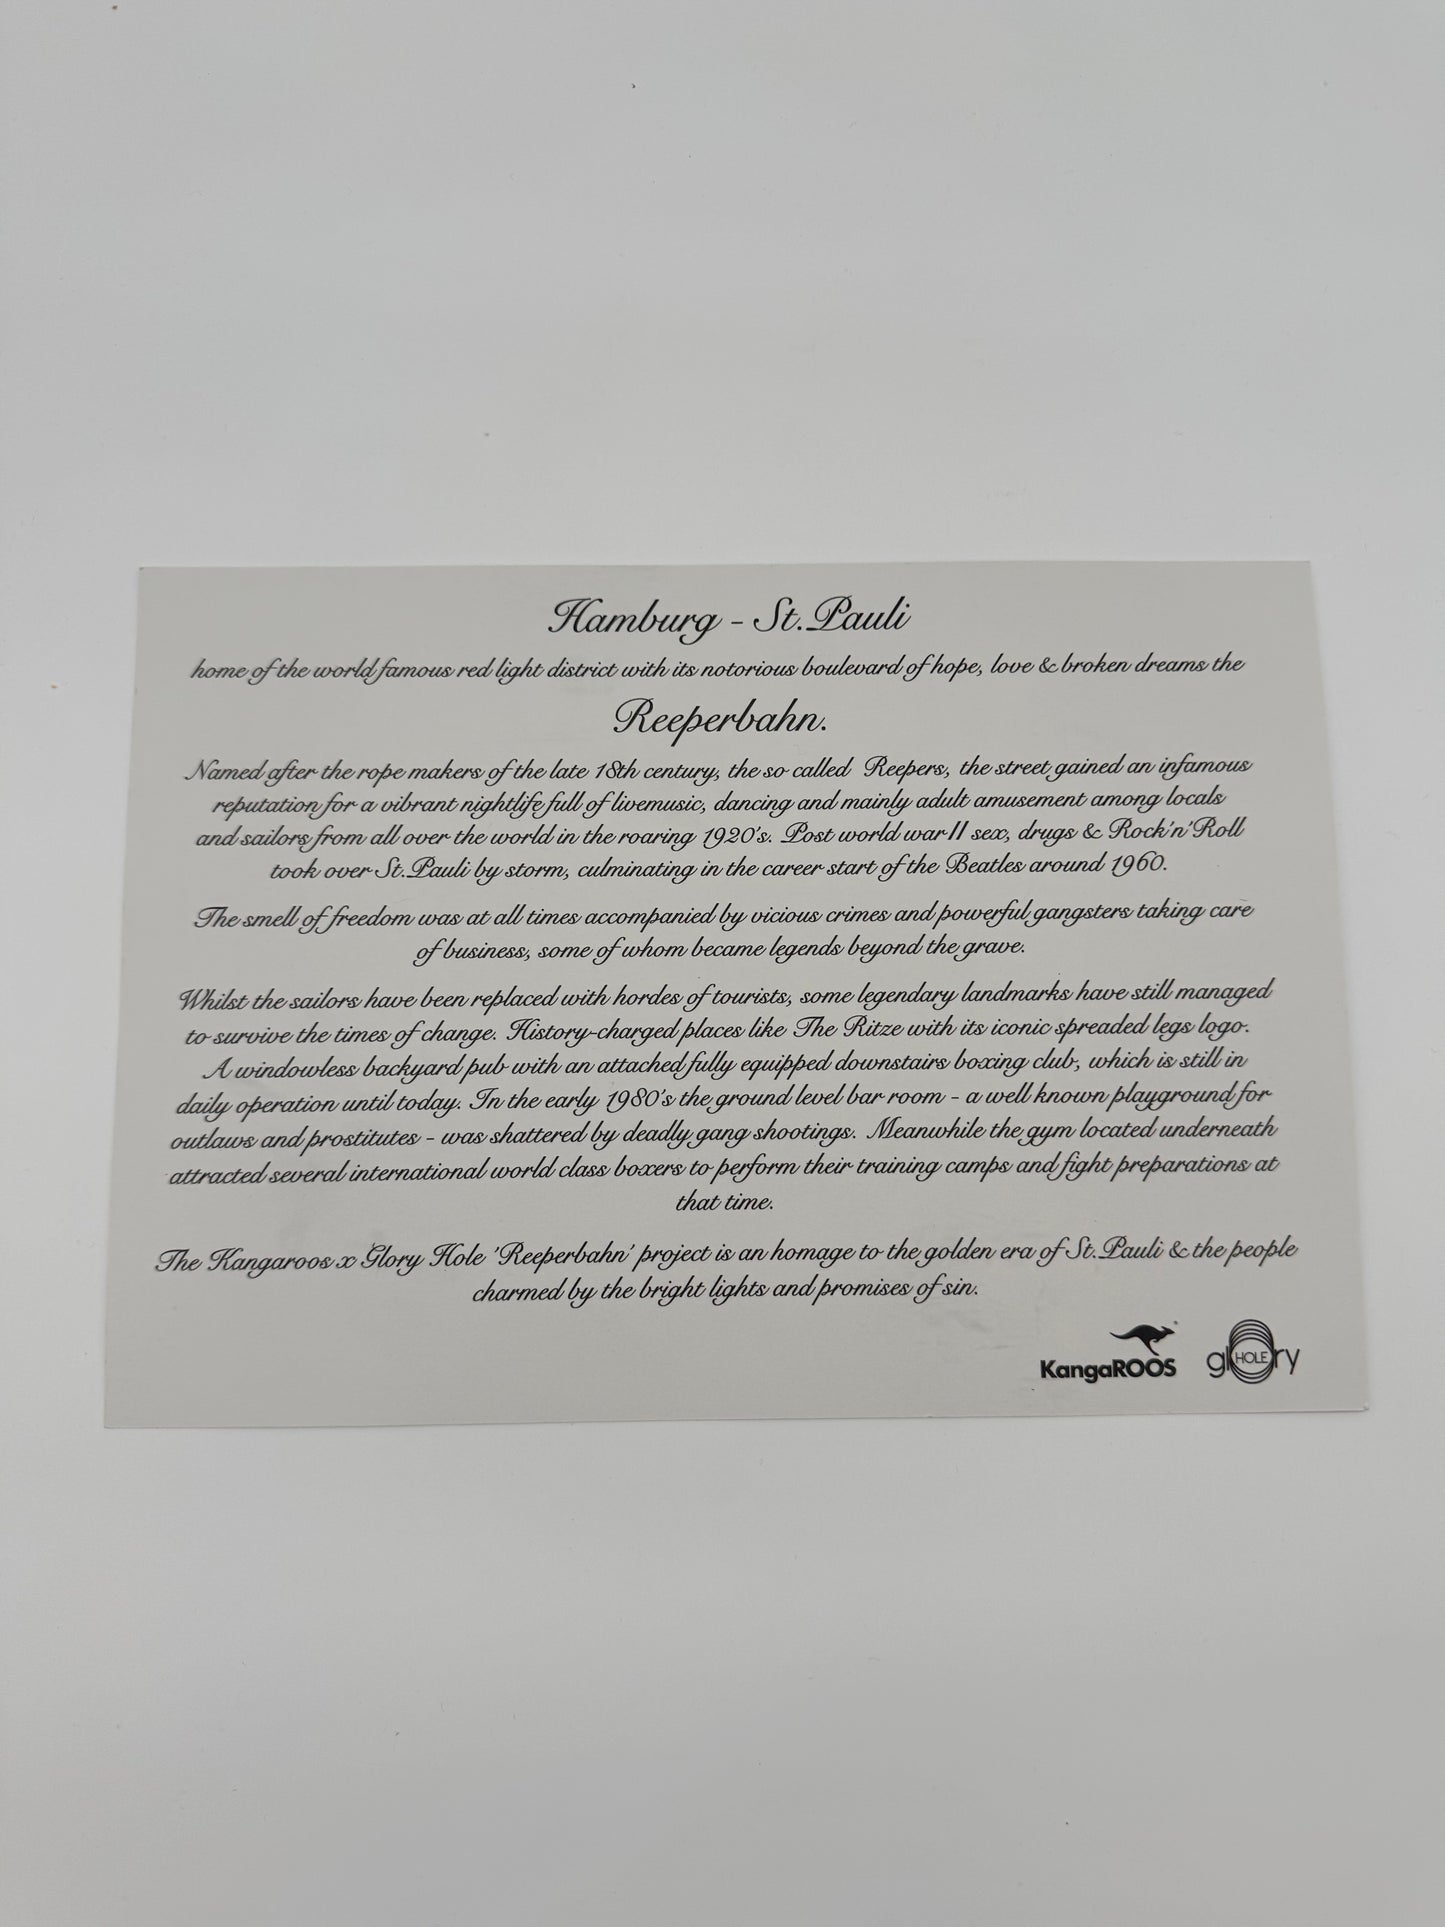 Hamburg - St. Pauli
home of the world famous red light district with its notorious boulevard of hope, love & broken dreams the
Reeperbahn.
Named after the rope makers of the late 18th century, the so called Reepers, the street gained an infamous
reputation for a vibrant nightlife full of livemusic, dancing and mainly adult amusement among locals
and sailors from all over the world in the roaring 1920's. Post world war II sex, drugs & Rock'n'Roll
took over St. Pauli by storm, culminating in the career start of the Beatles around 1960.
The smell of freedom was at all times accompanied by vicious crimes and powerful gangsters taking care
of business, some of whom became legends beyond the grave.
Whilst the sailors have been replaced with hordes of tourists, some legendary landmarks have still managed
to survive the times of change. History-charged places like The Ritze with its iconic spreaded legs logo.
A windowless backyard pub with an attached fully equipped downstairs boxing club, which is still in
daily operation until today. In the early 1980's the ground level bar room - a well known playground for
outlaws and prostitutes - was shattered by deadly gang shootings. Meanwhile the gym located underneath
attracted several international world class boxers to perform their training camps and fight preparations at
that time.
The Kangaroos x Glory Hole 'Reeperbahn' project is an homage to the golden era of St. Pauli & the people
charmed by the bright lights and promises of sin.
KangaROOS glory HOLE